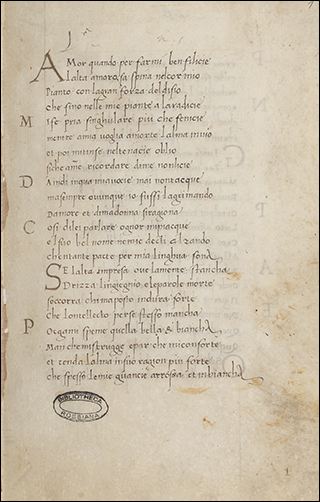 AMor quando per farmi ben felicie
Lalta amorosa spina nel cor mio
Pianto con la gran forza del disio
che fino nelle mie piante a la radicie
M Ise pria singhulare piu che fenicie
mentre a mia voglia a morte lalma invio
et poi minse nel tenacie oblio
siche ame ricordare dime non licie
D A indi in qua mia vocie mai non tacque
ma sempre ovunque io fussi lagrimando
Damore et dimadonna si ragiona
C osi di lei parlare ognor mi piacque
el suo bel nome ne miei decti alzando
che ntante parte per mia linghua sona
SE lalta impresa ove la mente stancha
Drizza lingiegnio e le parole morte
soccorra chi ma posto in dura sorte
che lontellecto per se stesso mancha
P Ocgani speme quella bella & biancha
Man che mi strugge e par che mi conforte
et renda lalma in suo ragion piu forte
che spesso le mie guancie arrossa et inbiancha
BIBLIOTHECA
ROSSIANA
1